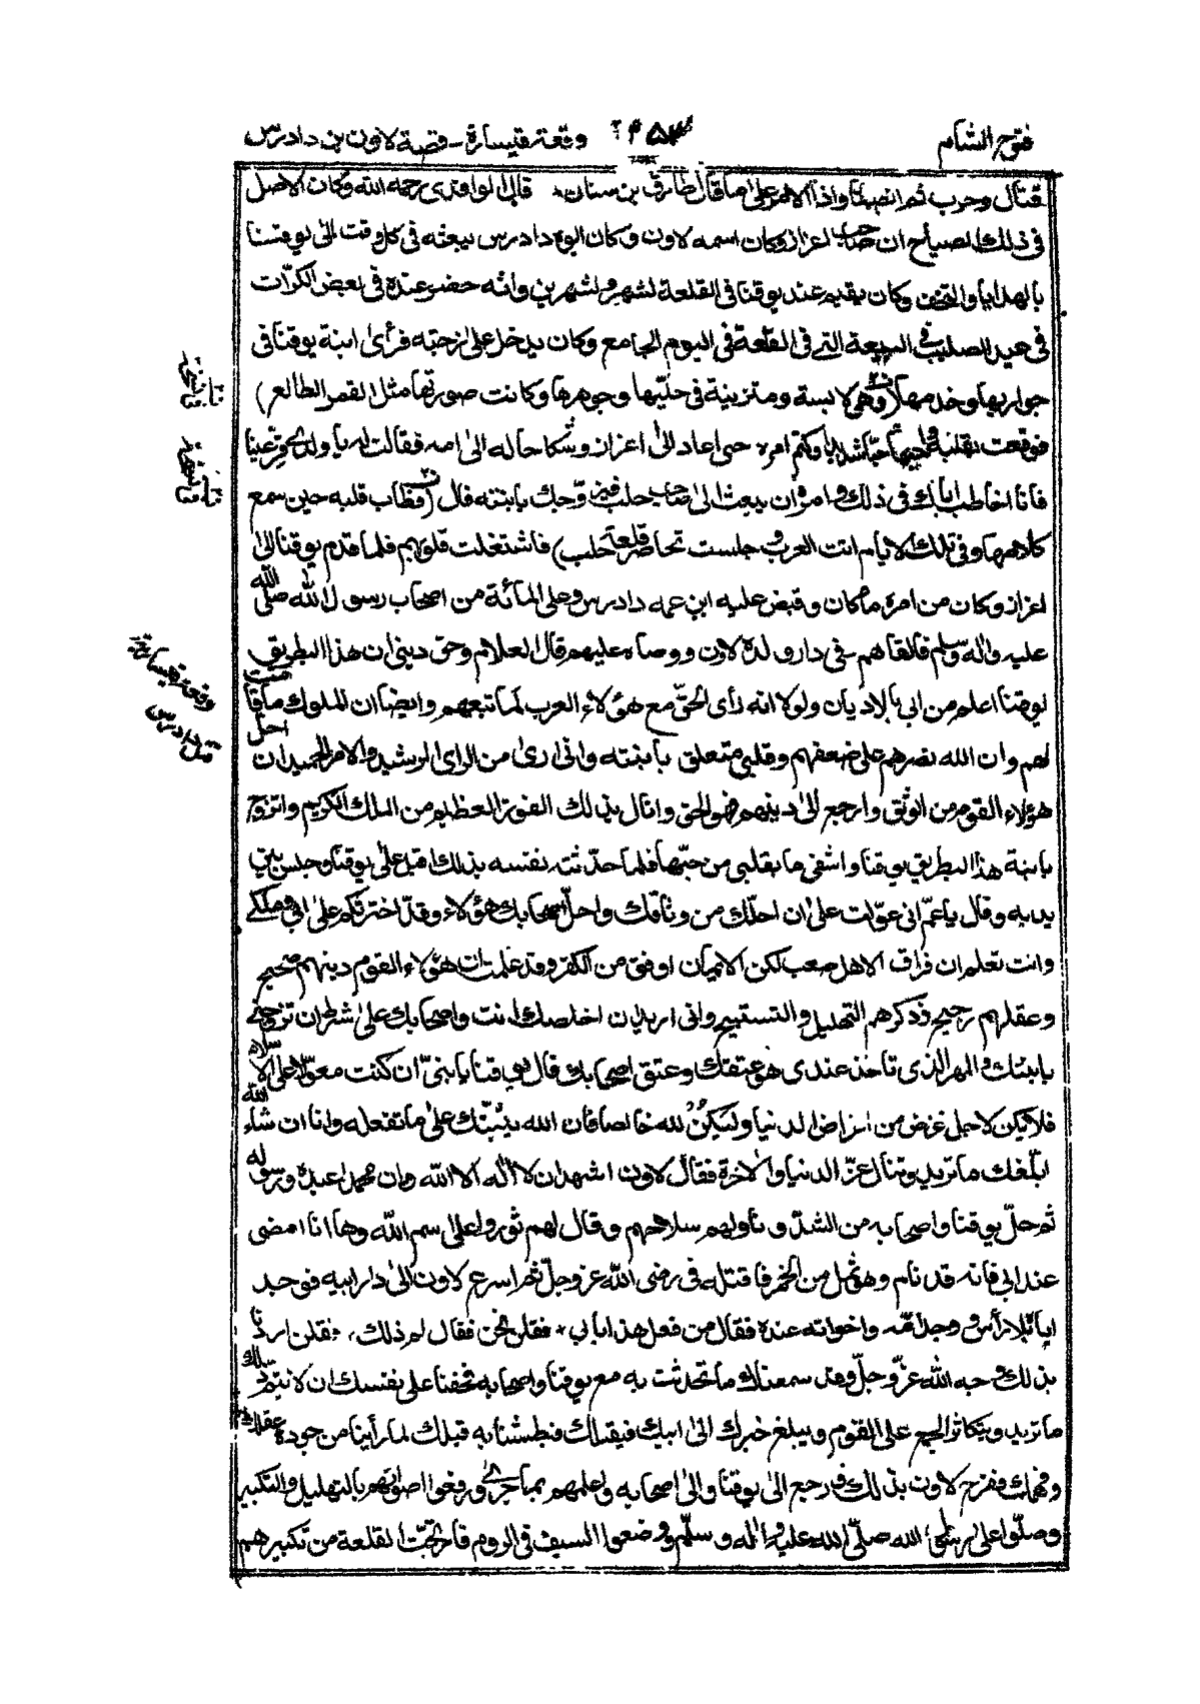 فتوح الشام
وقعة قيسارة - قصة لاون بن دادرس
قتال وحرب ثم انصتنا واذا الامر على ما قال طارق بن سنان قال الواقدي رحمه الله وكان الاصل
فى ذلك الصياح ان صاحب اعزاز وكان اسمه لاون وكان ابوه دادرس يبعثه فى كل وقت الى يوقنا
بالهدايا والتحف وكان يقيم عند يوقنا فى القلعة لشهر ولشهرين وانه حضر عنده فى بعض الكرّات
فى عيد الصليب فى البيعة التى فى القلعة فى اليوم الجامع وكان يدخل على زوجته فرأى ابنة يوقنا فى
جواريها وخدمها (وهى لابسة ومتزينة فى حليّها وجوهرها وكانت صورتها مثل القمر الطالع)
فوقعت بقلبه فاحبها حبّا شديدا وكتم امره حتى اعاد الى اعزاز وشكا حاله الى امه فقالت له يا ولدى قرّ عينا
فانا اخاطب اباك فى ذلك وامره ان يبعث الى صاحب حلب فيزوّجك بابنته قال (فطاب قلبه حين سمع
كلامها وفى تلك الايام اتت العرب وجلست تحاصر قلعة حلب) فاشتغلت قلوبهم فلما قدم يوقنا الى
اعزاز وكان من امره ما كان وقبض عليه ابن عمه دادرس وعلى المائة من اصحاب رسول الله صلى الله
عليه واله وسلم فالقاهم فى دار ولده لاون ووصاه عليهم قال الغلام وحق دينى ان هذا البطريق
يوقنا اعلم من ابى بالاديان ولولا انه رأى الحقّ مع هؤلاء العرب لما تبعهم وايضا ان الملوك ما قامت
لهم وان الله نصرهم على ضعفهم وقلبى متعلق بابنته وانى ارى من الراى الرشيد والامر الحميد ان احل
هؤلاء القوم من الوثق وارجع الى دينهم فهو الحق وانال بذلك الفوز العظيم من الملك الكريم واتزوج
بابنة هذا البطريق يوقنا واشفى ما بقلبى من حبّها فلما حدّثته نفسه بذلك اقبل على يوقنا وجلس بين
يديه وقال يا عمّ انى عوّلت على ان احلّك من وثاقك واحلّ اصحابك هؤلاء وقد اخترتكم على ابى وملكى
وانت تعلم ان فراق الاهل صعب لكن الايمان اوفق من الكفر وقد علمت ان هؤلاء القوم دينهم صحيح
وعقلهم رجيح وذكرهم التهليل والتسبيح وانى اريد ان اخلصك انت واصحابك على شرط ان تزوجنى
بابنتك والمهر الذى تاخذ عندى هو عتقك وعتق اصحابك قال يوقنا يا بنىّ ان كنت معوّلا على الاسلام
فلا تكن لاجل غرض من اغراض الدنيا وليكن لله خالصا فان الله يثبّتك على ما تفعله وانا ان شاء الله
ابلّغك ما تريد وتنال عزّ الدنيا والاخرة فقال لاون اشهد ان لا اله الا الله وان محمدا عبده ورسوله
ثم حلّ يوقنا واصحابه من الشدّ وناولهم سلاحهم وقال لهم ثوروا على اسم الله وها انا امضى
عند ابى فانه قد نام وهو ثمل من الخمر فاقتله فى رضى الله عز وجلّ ثم اسرع لاون الى دار ابيه فوجد
اباه بلا رأس ووجد امّه واخواته عنده فقال من فعل هذا بابى فقلن نحن فقال لم ذلك فقلن اردنا
بذلك وجه الله عزّ وجلّ وقد سمعناك ما تحدثت به مع يوقنا واصحابه فخفنا على نفسك ان لا يتم ذلك
ما تريد ويتكاثر الجمع على القوم ويبلغ خبرك الى ابيك فيقتلك فبطشنا به قبلك لما رأينا من جودة عقلك
وفهمك ففرح لاون بذلك فرجع الى يوقنا والى اصحابه واعلمهم بما جرى ورفعوا اصواتهم بالتهليل والتكبير
وصلّوا على رسول الله صلّى الله عليه واله وسلّم ووضعوا السيف فى الروم فارتجّت القلعة من تكبيرهم
وقعة قيسارة
قتل دادرس